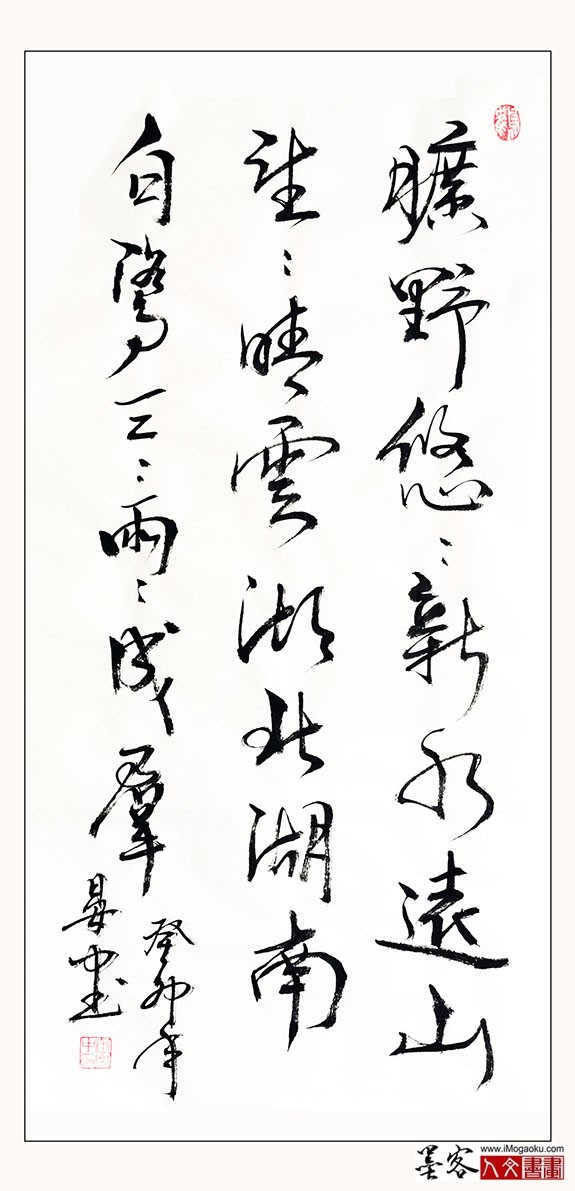 曠野悠々新水遠山
望々晴雲湖北湖南
白鷺三々兩々成羣
癸卯年
晏中書
墨客
www.iMogaoku.com
人文書畫